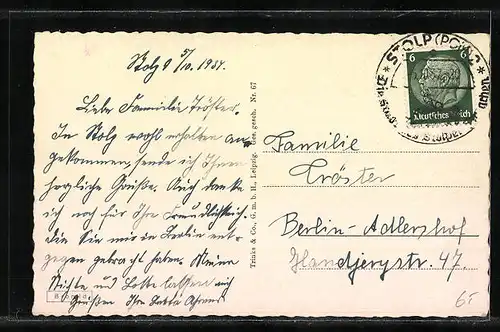 Stolp d 5/10. 1934.
Liebe Familie Tröster.
In Stolp wohl erhalten an-
gekommen, sende ich Ihnen
herzliche Grüße. Auch danke
ich noch für Ihre Freundlichkeit.
die Sie mir in Berlin ent-
gegen gebracht haben. Meine
Nichte und Lotte lassen
Grüßen Ihre
Trinks & Co., G. m. b. H., Leipzig. Ges. gesch. Nr. 67
STOLP (POM)
6 6
Deutsches Reich
Familie
Tröster
Berlin-Adlershof
Handjerystr. 47.